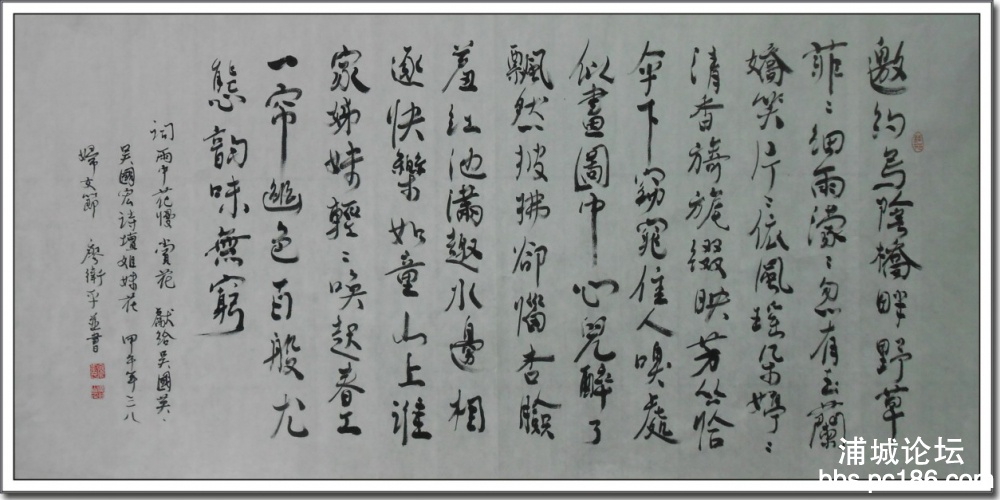 邀約烏陰橋畔野草
菲〻細雨濛〻忽有玉蘭
嬌笑片〻依風搖朵婷〻
清香旖旎綴映芳叢恰
伞下窈窕佳人嗅處
似畫圖中心兒醉了
飄然披拂卻惱杏臉
羞紅池滿趣水邊相
逐快樂如童山上誰
家姊妹輕〻喚起春工
一帘幽色百般尤
態韵味無窮
词雨中花慢 赏花 獻給吴國英、
吴國宏詩壇姐妹花 甲午年三八
婦女節 廖衛平並書
浦城论坛
bbs.pc186.com